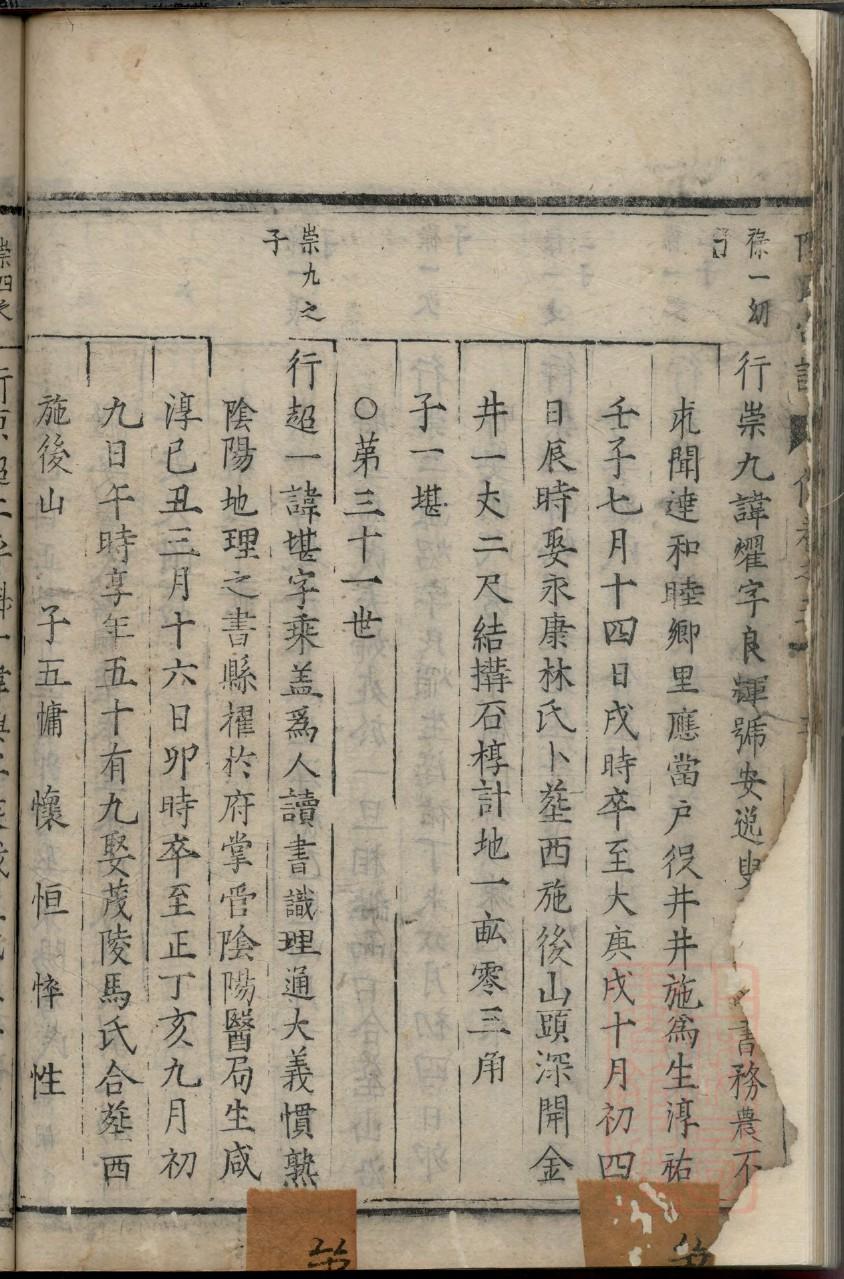 祿一幼
子
行崇九諱燿字良輝號安逸叟
書務農不
求聞達和睦鄉里應當户役井井施為生淳祐
壬子七月十四日戌時卒至大庚戌十月初四
日辰時娶永康林氏卜塟西施後山頭深開金
井一丈二尺結搆石椁計地一畝零三角
子一堪
○第三十一世
崇九之
子
行超一諱堪字乘盖爲人讀書識理通大義慣熟
陰陽地理之書縣擢於府掌管陰陽醫局生咸
淳己丑三月十六日卯時卒至正丁亥九月初
九日午時享年五十有九娶茂陵馬氏合塟西
施後山 子五慵 懷 恒 悴 性
崇四之